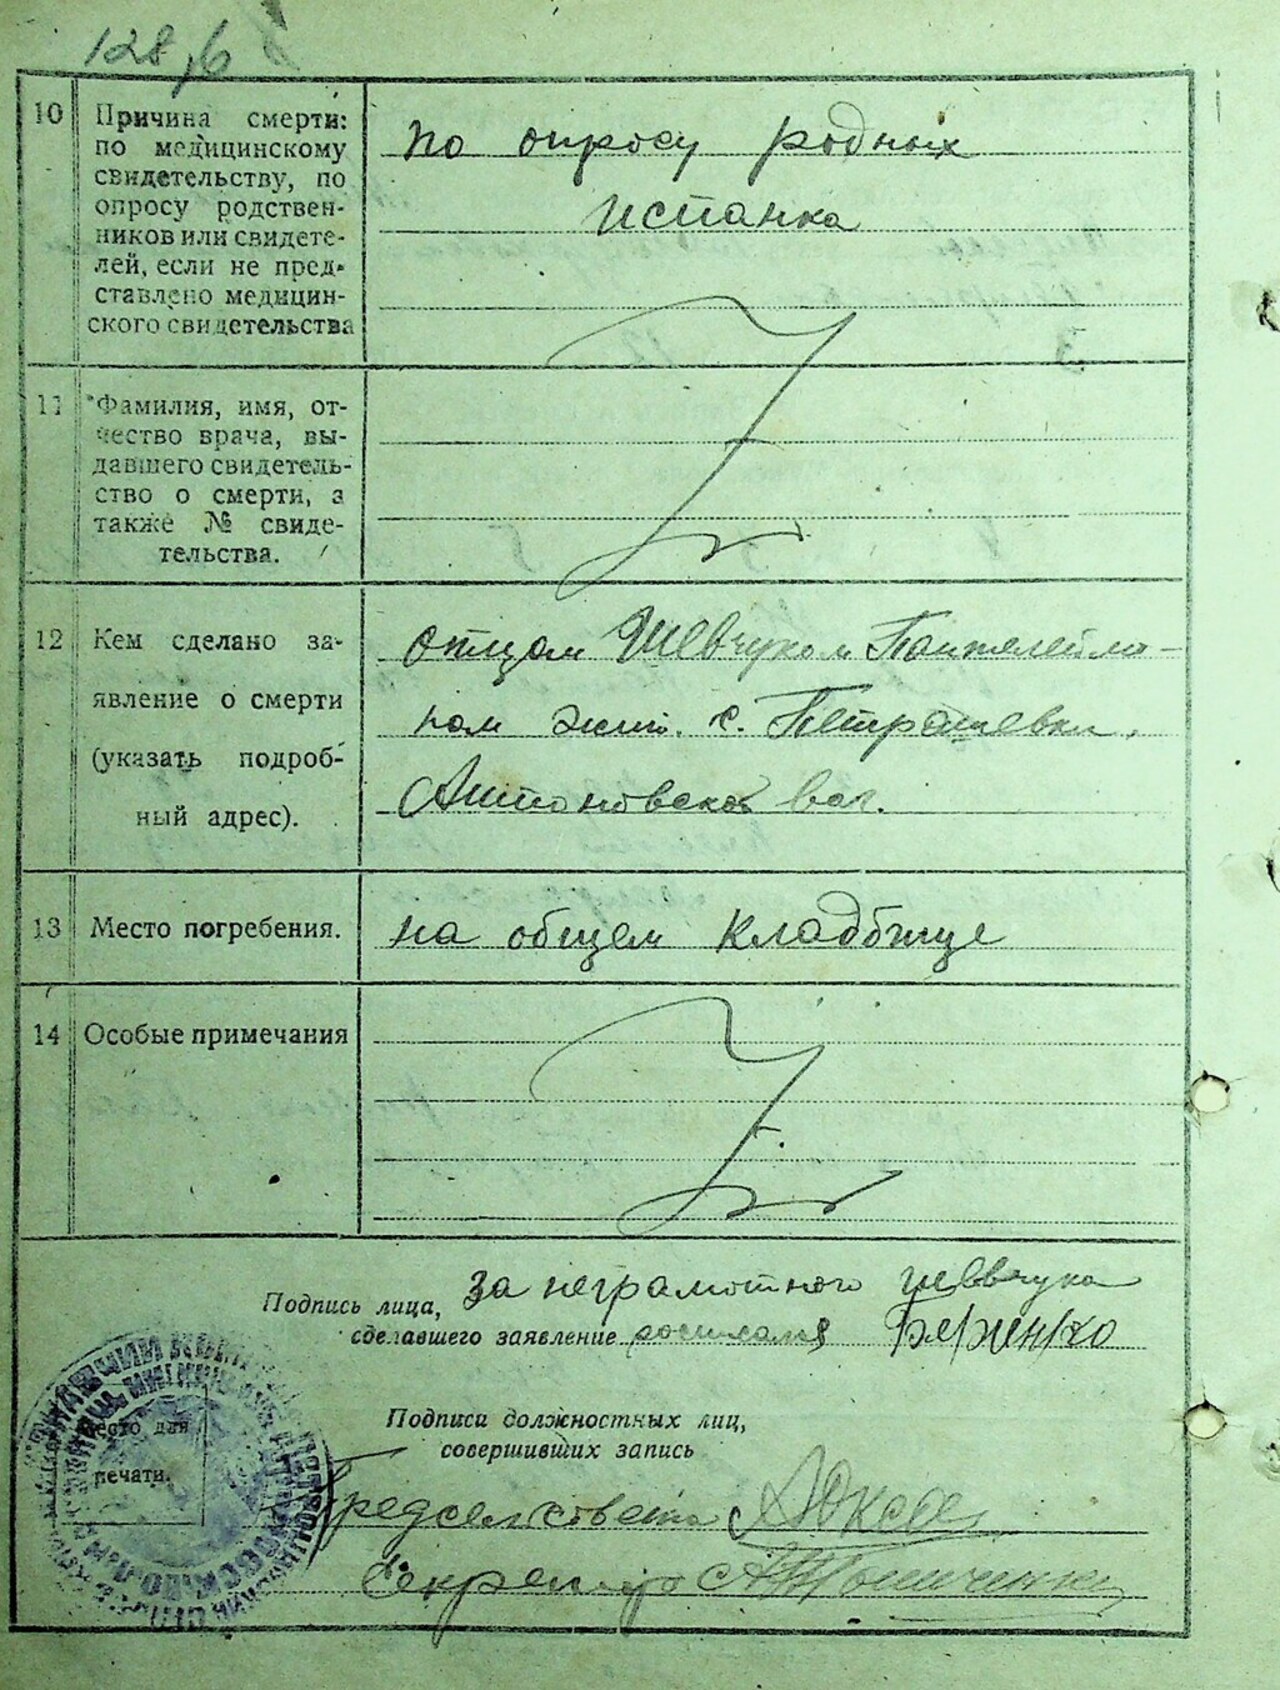 128,б
10 Причина смерти:
по медицинскому
свидетельству, по
опросу родствен-
ников или свидете-
лей, если не пред-
ставлено медицин-
ского свидетельства
по опросу родных
испанка
11 Фамилия, имя, от-
чество врача, вы-
давшего свидетель-
ство о смерти, а
также № свиде-
тельства.
12 Кем сделано за-
явление о смерти
(указать подроб-
ный адрес).
отцом Шевчуком Пантелеймо-
ном жит. с. Петрашевки,
Антоновской вол.
13 Место погребения.
на общем кладбище
14 Особые примечания
Подпись лица, за неграмотного Шевчука
сделавшего заявление
Место для
печати.
Подписи должностных лиц,
совершивших запись
Предсельсовета
Секретарь